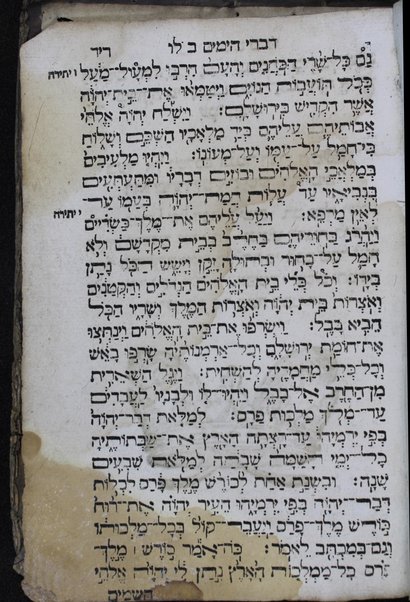 דברי הימים ב לו
ריד
גַּם כָּל־שָׂרֵי הַכֹּהֲנִים וְהָעָם הִרְבּוּ לִמְעוֹל־מַעַל
ו יתירה
כְּכֹל תּוֹעֲבוֹת הַגּוֹיִם וַיְטַמְּאוּ אֶת־בֵּית יְהוָה
אֲשֶׁר הִקְדִּישׁ בִּירוּשָׁלִָם׃ וַיִּשְׁלַח יְהוָה אֱלֹהֵי
אֲבוֹתֵיהֶם עֲלֵיהֶם בְּיַד מַלְאָכָיו הַשְׁכֵּם וְשָׁלוֹחַ
כִּי־חָמַל עַל־עַמּוֹ וְעַל־מְעוֹנוֹ׃ וַיִּהְיוּ מַלְעִבִים
בְּמַלְאֲכֵי הָאֱלֹהִים וּבוֹזִים דְּבָרָיו וּמִתַּעְתְּעִים
בִּנְבִיאָיו עַד עֲלוֹת חֲמַת־יְהוָה בְּעַמּוֹ עַד־
לְאֵין מַרְפֵּא׃ וַיַּעַל עֲלֵיהֶם אֶת־מֶלֶךְ כַּשְׂדִּיים
י יתירה
וַיַּהֲרֹג בַּחוּרֵיהֶם בַּחֶרֶב בְּבֵית מִקְדָּשָׁם וְלֹא
חָמַל עַל־בָּחוּר וּבְתוּלָה זָקֵן וְיָשֵׁשׁ הַכֹּל נָתַן
בְּיָדוֹ׃ וְכֹל כְּלֵי בֵּית הָאֱלֹהִים הַגְּדֹלִים וְהַקְּטַנִּים
וְאֹצְרוֹת בֵּית יְהוָה וְאֹצְרוֹת הַמֶּלֶךְ וְשָׂרָיו הַכֹּל
הֵבִיא בָבֶל׃ וַיִּשְׂרְפוּ אֶת־בֵּית הָאֱלֹהִים וַיְנַתְּצוּ
אֶת־חוֹמַת יְרוּשָׁלִָם וְכָל־אַרְמְנוֹתֶיהָ שָׂרְפוּ בָאֵשׁ
וְכָל־כְּלֵי מַחֲמַדֶּיהָ לְהַשְׁחִית׃ וַיֶּגֶל הַשְּׁאֵרִית
מִן־הַחֶרֶב אֶל־בָּבֶל וַיִּהְיוּ־לוֹ וּלְבָנָיו לַעֲבָדִים
עַד־מְלֹךְ מַלְכוּת פָּרָס׃ לְמַלֹּאת דְּבַר־יְהוָה
בְּפִי יִרְמְיָהוּ עַד־רָצְתָה הָאָרֶץ אֶת־שַׁבְּתוֹתֶיהָ
כָּל־יְמֵי הָשַּׁמָּה שָׁבָתָה לְמַלֹּאות שִׁבְעִים
שָׁנָה׃ וּבִשְׁנַת אַחַת לְכוֹרֶשׁ מֶלֶךְ פָּרַס לִכְלוֹת
דְּבַר־יְהוָה בְּפִי יִרְמְיָהוּ הֵעִיר יְהוָה אֶת־רוּחַ
כּוֹרֶשׁ מֶלֶךְ־פָּרַס וַיַּעֲבֶר־קוֹל בְּכָל־מַלְכוּתוֹ
וְגַם־בְּמִכְתָּב לֵאמֹר׃ כֹּה־אָמַר כּוֹרֶשׁ מֶלֶךְ
פָּרַס כָּל־מַמְלְכוֹת הָאָרֶץ נָתַן לִי יְהוָה אֱלֹהֵי
השמים